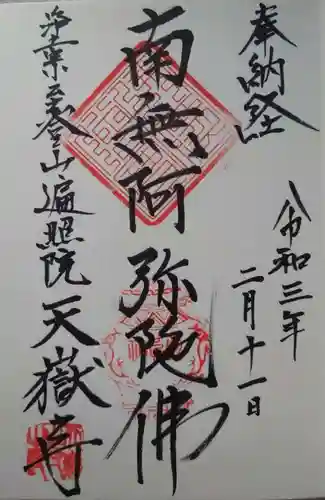 奉納経
令和三年
二月十一日
南無阿弥陀佛
山遍照院
天嶽寺